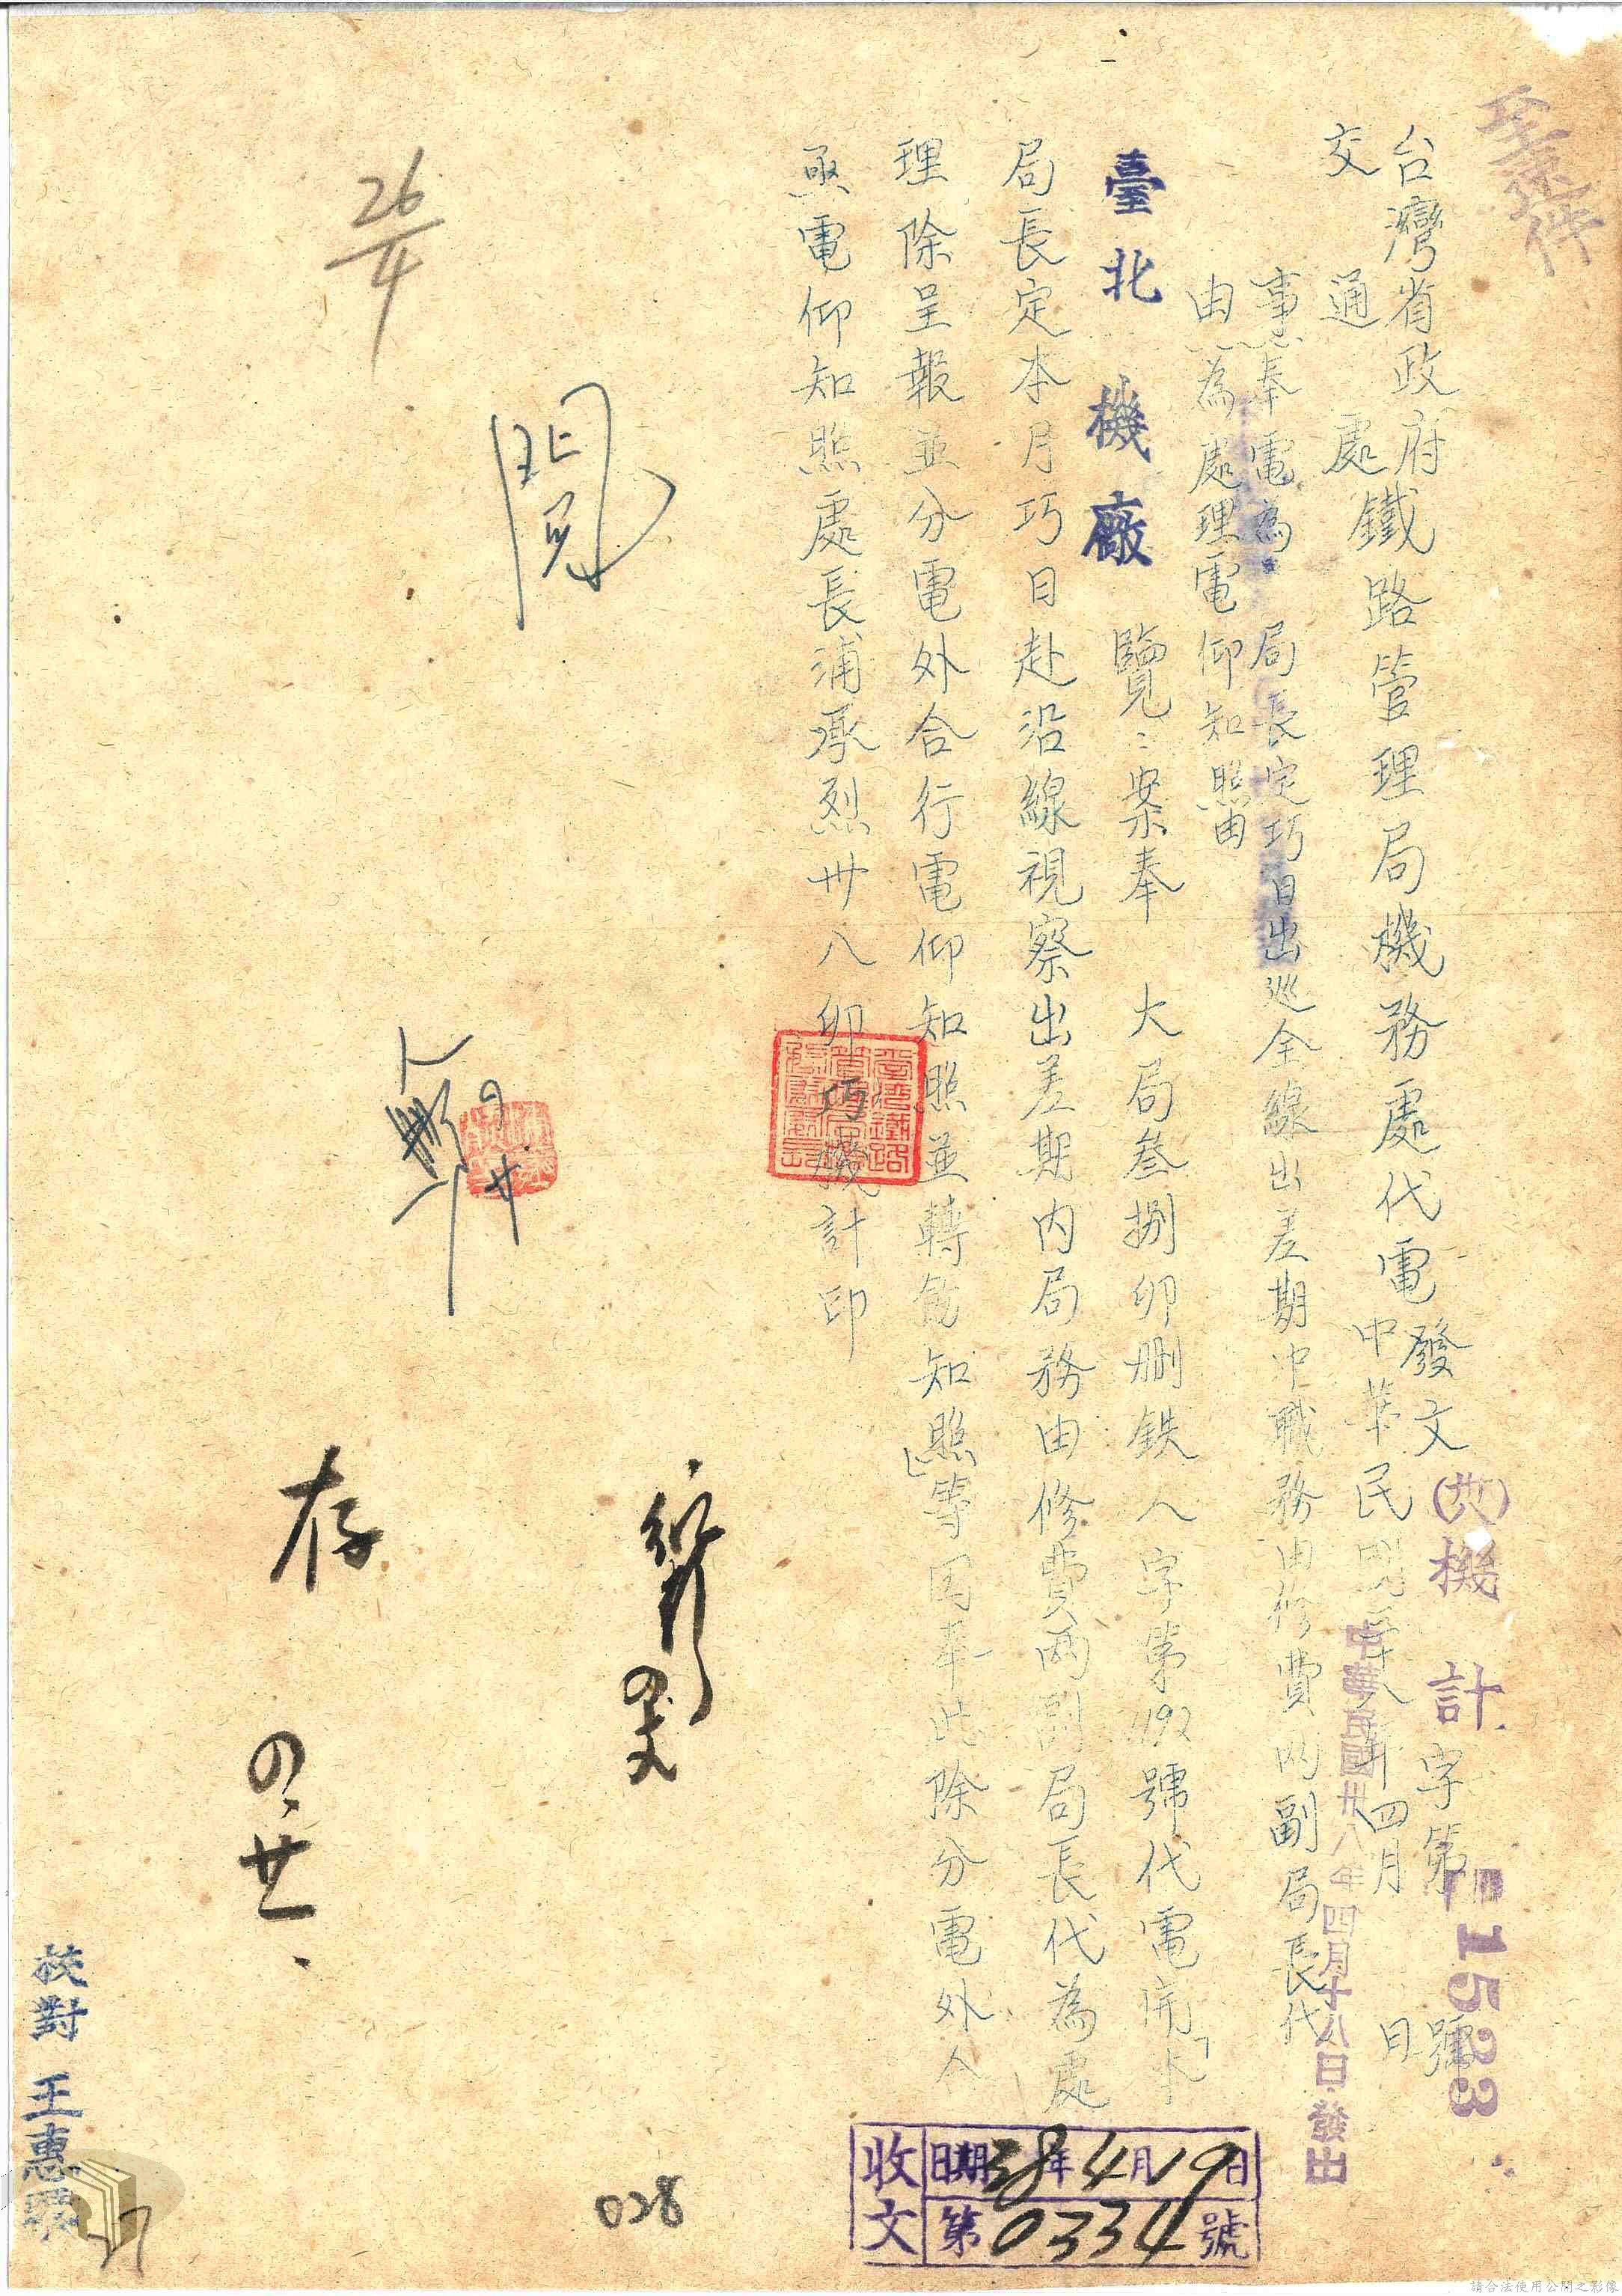 台灣省政府鐵路管理局機務處代電
交通處
發文(卅八)機計字第1523號
中華民國卅八年四月 日
中華民國卅八年四月十八日發出
事由:奉電為 局長定巧日出巡全線出差期中職務由修費兩副局長代
為處理電仰知照由
臺北機廠 覽:案奉 大局叁捌卯刪鉄人字第1192號代電開「本
局長定本月巧日赴沿線視察出差期內局務由修費兩副局長代為處
理除呈報並分電外合行電仰知照並轉飭知照」等因奉此除分電外合
亟電仰知照處長浦承烈卅八卯巧機計印
26/4
閱
存
校對 王惠
028
27
收文
日期38年4月19日
第0334號
請合法使用公開之影像